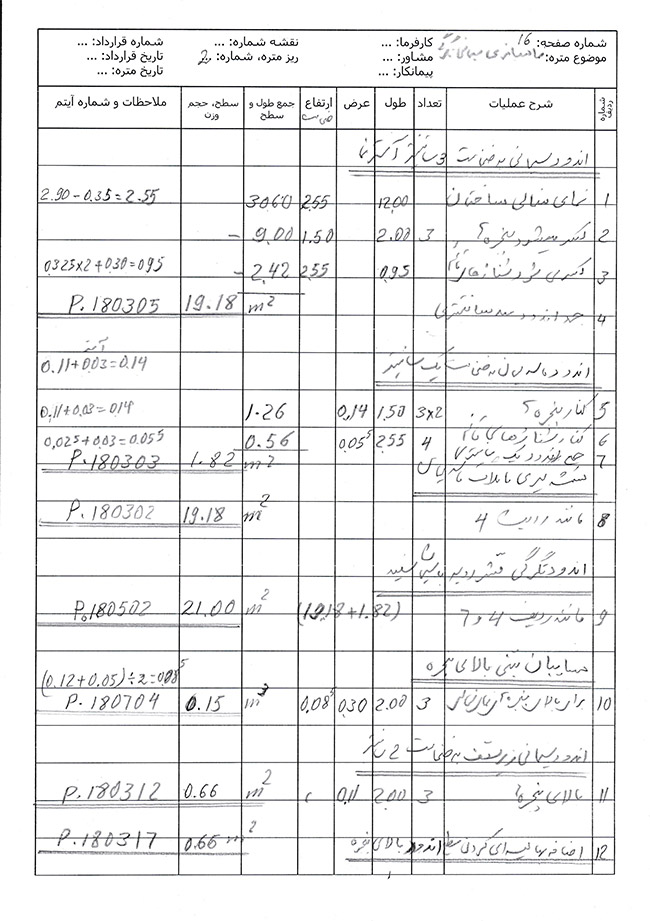 شماره صفحه: 16 کارفرما: ... نقشه شماره: ... شماره قرارداد: ...
موضوع متره: مشاور: ... ریز متره، شماره: 2 تاریخ قرارداد: ...
پیمانکار: ... تاریخ متره: ...
شماره ردیف شرح عملیات تعداد طول عرض ارتفاع جمع طول و سطح سطح، حجم وزن ملاحظات و شماره آیتم
اندود سیمانی به ضخامت 3 سانتیمتر
1 نمای شمالی ساختمان 12.00 2.55 30.60 2.90 - 0.35 = 2.55
2 کسر میشود پنجره ها 3 2.00 1.50 - 9.00
3 0.95 2.55 - 2.42 0.325x2+0.30=0.95
4 m2 19.18 P.180305
0.11+0.03=0.14
5 کنار پنجره ها 3x2 1.50 0.14 1.26 0.11+0.03=0.14
6 4 2.55 0.055 0.56 0.025+0.03=0.055
7 m2 1.82 P.180303
8 مانند ردیف 4 m2 19.18 P.180302
اندود تگرگی
9 مانند ردیف 4 و 7 (19.18+1.82) m2 21.00 P.180502
سایبان بتنی بالای پنجره
(0.12+0.05)÷2=0.085
10 3 2.00 0.30 0.085 m3 0.15 P.180704
اندود سیمانی زیر سقف به ضخامت 2
11 بالای پنجره ها 3 2.00 0.11 m2 0.66 P.180312
12 اضافه بها اندود بالای پنجره 0.66 m2 P.180317